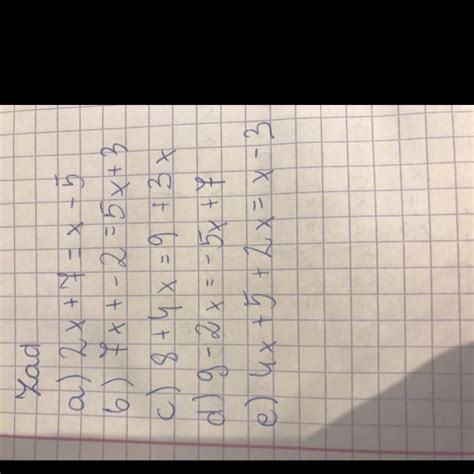 Zad
a) 2x+7=x-5
b) 7x+-2=5x+3
c) 8+4x=9+3x
d) 9-2x=-5x+7
e) 4x+5+2x=x-3